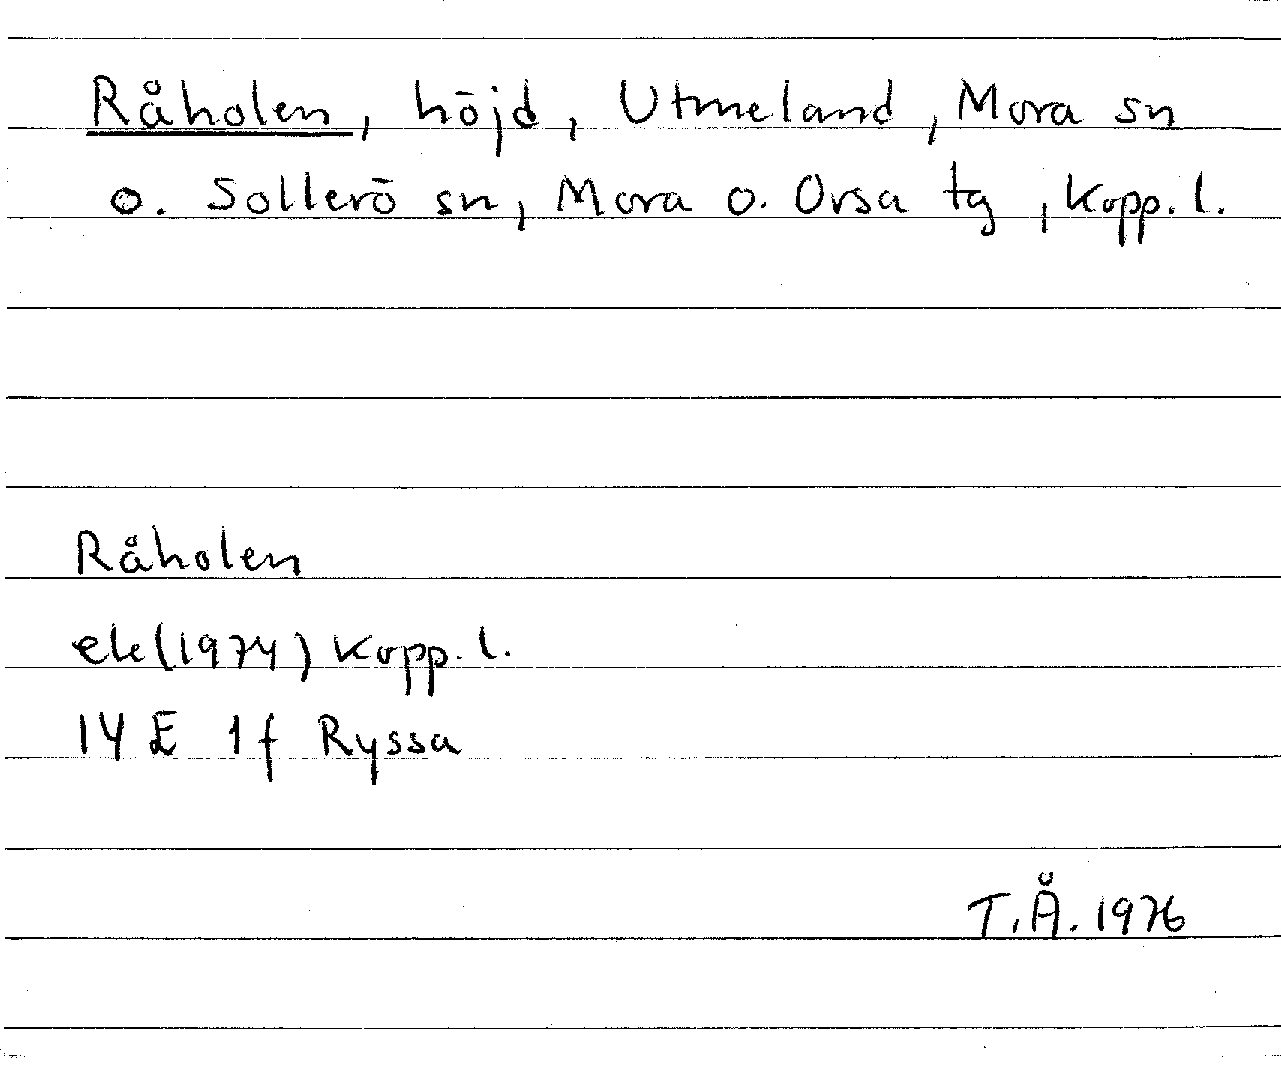 Råholen, höjd, Utmeland, Mora sn
o. Sollerö sn, Mora o. Orsa tg, Kopp. l.
Råholen
ek (1974) Kopp. l.
14 E 1 f Ryssa
T.Å. 1976